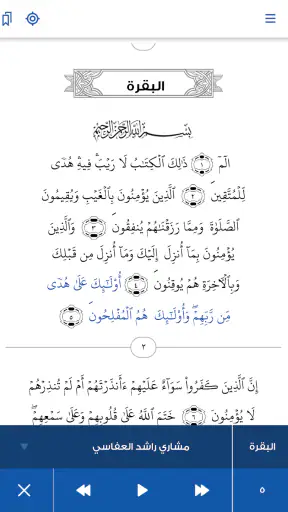 البقرة
بِسْمِ اللَّهِ الرَّحْمَٰنِ الرَّحِيمِ
الٓمٓ ﴿١﴾ ذَٰلِكَ ٱلْكِتَٰبُ لَا رَيْبَۛ فِيهِۛ هُدًى
لِّلْمُتَّقِينَ ﴿٢﴾ ٱلَّذِينَ يُؤْمِنُونَ بِٱلْغَيْبِ وَيُقِيمُونَ
ٱلصَّلَوٰةَ وَمِمَّا رَزَقْنَٰهُمْ يُنفِقُونَ ﴿٣﴾ وَٱلَّذِينَ
يُؤْمِنُونَ بِمَآ أُنزِلَ إِلَيْكَ وَمَآ أُنزِلَ مِن قَبْلِكَ
وَبِٱلْءَاخِرَةِ هُمْ يُوقِنُونَ ﴿٤﴾ أُو۟لَٰٓئِكَ عَلَىٰ هُدًى
مِّن رَّبِّهِمْۖ وَأُو۟لَٰٓئِكَ هُمُ ٱلْمُفْلِحُونَ ﴿٥﴾
٢
إِنَّ ٱلَّذِينَ كَفَرُوا۟ سَوَآءٌ عَلَيْهِمْ ءَأَنذَرْتَهُمْ أَمْ لَمْ تُنذِرْهُمْ
لَا يُؤْمِنُونَ ﴿٦﴾ خَتَمَ ٱللَّهُ عَلَىٰ قُلُوبِهِمْ وَعَلَىٰ سَمْعِهِمْۖ
البقرة مشاري راشد العفاسي
٥